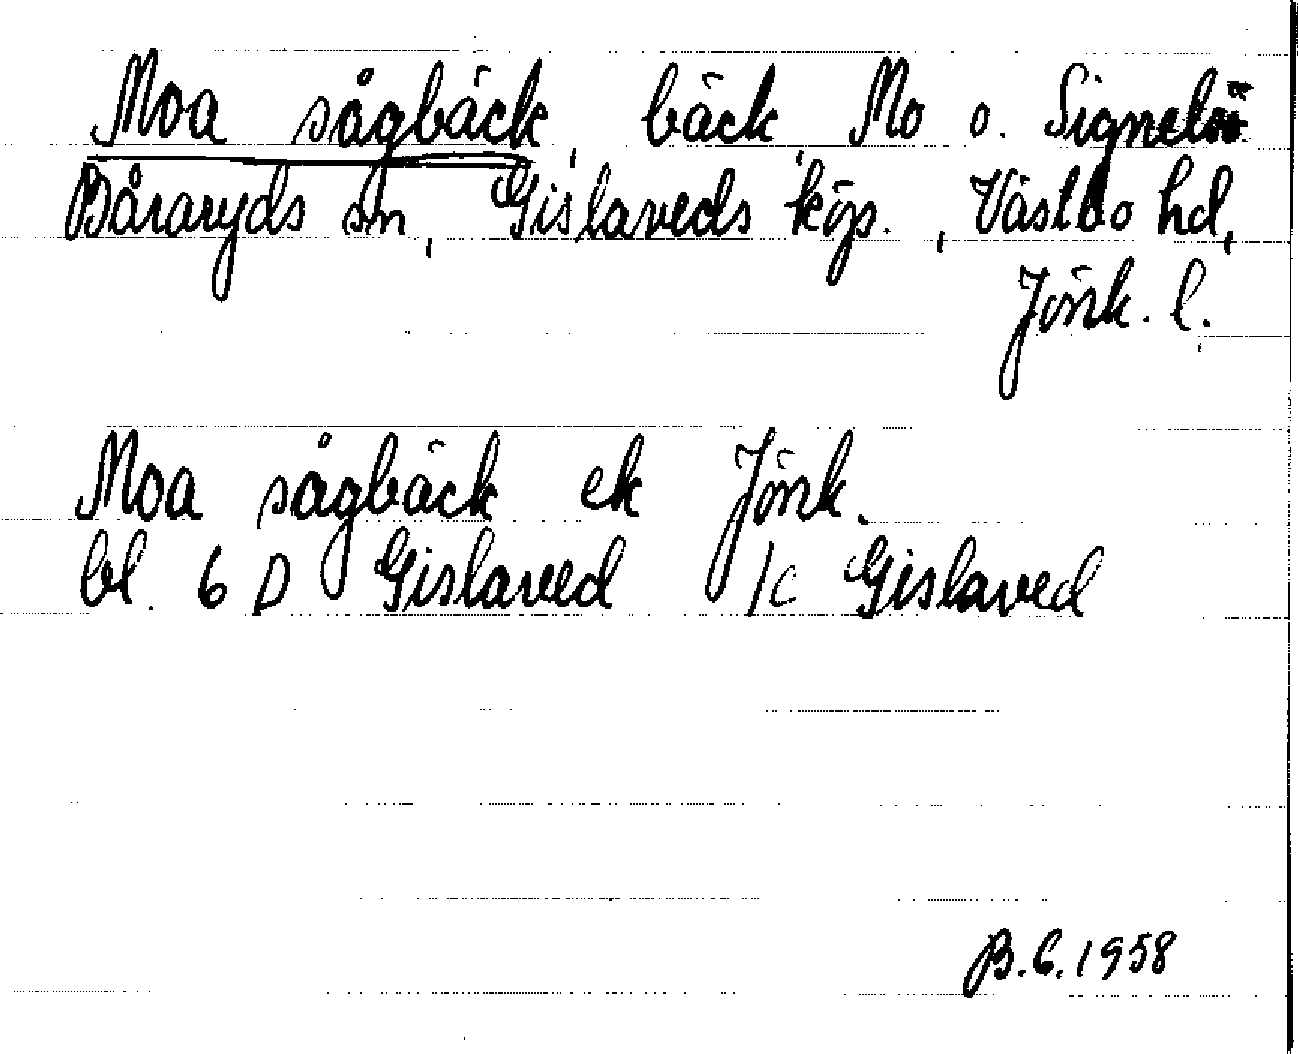 Moa sågbäck, bäck, Mo o.
Båraryds sn, Gislaveds köp., Västbo hd,
Jönk. l.
Moa sågbäck ek Jönk.
bl. 6 D Gislaved /c Gislaved
B.C. 1958